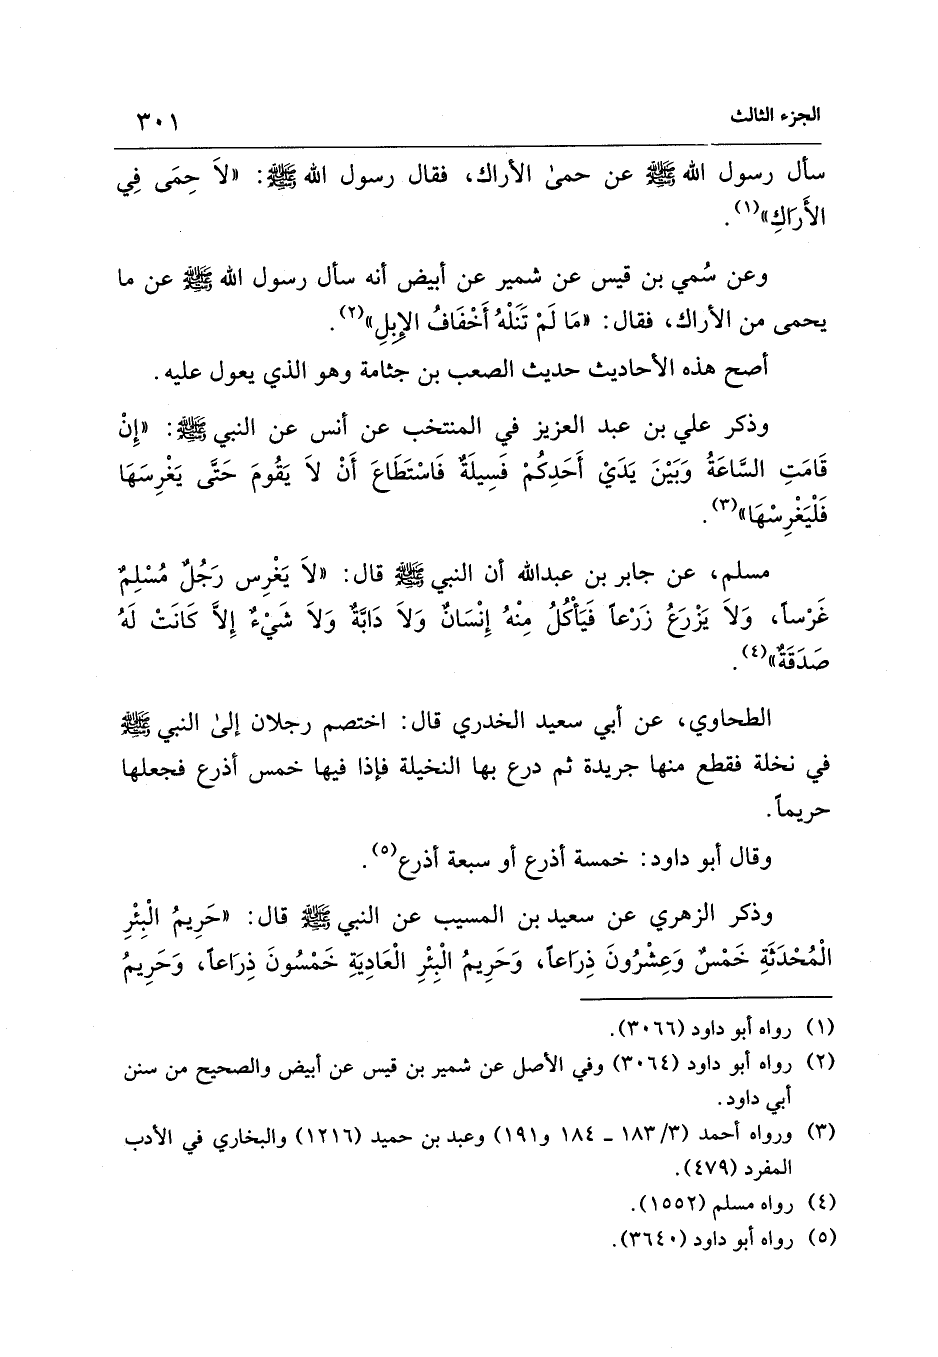 الجزء الثالث ٣٠١
سأل رسول الله ﷺ عن حمىٰ الأراك، فقال رسول الله ﷺ: «لاَ حِمَى فِي
الأَرَاكِ»(١).
وعن سُمي بن قيس عن شمير عن أبيض أنه سأل رسول الله ﷺ عن ما
يحمى من الأراك، فقال: «مَا لَمْ تَنَلْهُ أَخْفَافُ الإِبِلِ»(٢).
أصح هذه الأحاديث حديث الصعب بن جثامة وهو الذي يعول عليه.
وذكر علي بن عبد العزيز في المنتخب عن أنس عن النبي ﷺ: «إِنْ
قَامَتِ السَّاعَةُ وَبَيْنَ يَدَيْ أَحَدِكُمْ فَسِيلَةٌ فَاسْتَطَاعَ أَنْ لاَ يَقُومَ حَتَّى يَغْرِسَهَا
فَلْيَغْرِسْهَا»(٣).
مسلم، عن جابر بن عبدالله أن النبي ﷺ قال: «لاَ يَغْرِس رَجُلٌ مُسْلِمٌ
غَرْساً، وَلاَ يَزْرَعُ زَرْعاً فَيَأْكُلُ مِنْهُ إِنْسَانٌ وَلاَ دَابَّةٌ وَلاَ شَيْءٌ إِلاَّ كَانَتْ لَهُ
صَدَقَةٌ»(٤).
الطحاوي، عن أبي سعيد الخدري قال: اختصم رجلان إلىٰ النبي ﷺ
في نخلة فقطع منها جريدة ثم درع بها النخيلة فإذا فيها خمس أذرع فجعلها
حريماً.
وقال أبو داود: خمسة أذرع أو سبعة أذرع(٥).
وذكر الزهري عن سعيد بن المسيب عن النبي ﷺ قال: «حَرِيمُ الْبِئْرِ
الْمُحْدَثَةِ خَمْسٌ وَعِشْرُونَ ذِرَاعاً، وَحَرِيمُ الْبِئْرِ الْعَادِيَةِ خَمْسُونَ ذِرَاعاً، وَحَرِيمُ
(١) رواه أبو داود (٣٠٦٦).
(٢) رواه أبو داود (٣٠٦٤) وفي الأصل عن شمير بن قيس عن أبيض والصحيح من سنن
أبي داود.
(٣) ورواه أحمد (٣/ ١٨٣ ـ ١٨٤ و١٩١) وعبد بن حميد (١٢١٦) والبخاري في الأدب
المفرد (٤٧٩).
(٤) رواه مسلم (١٥٥٢).
(٥) رواه أبو داود (٣٦٤٠).